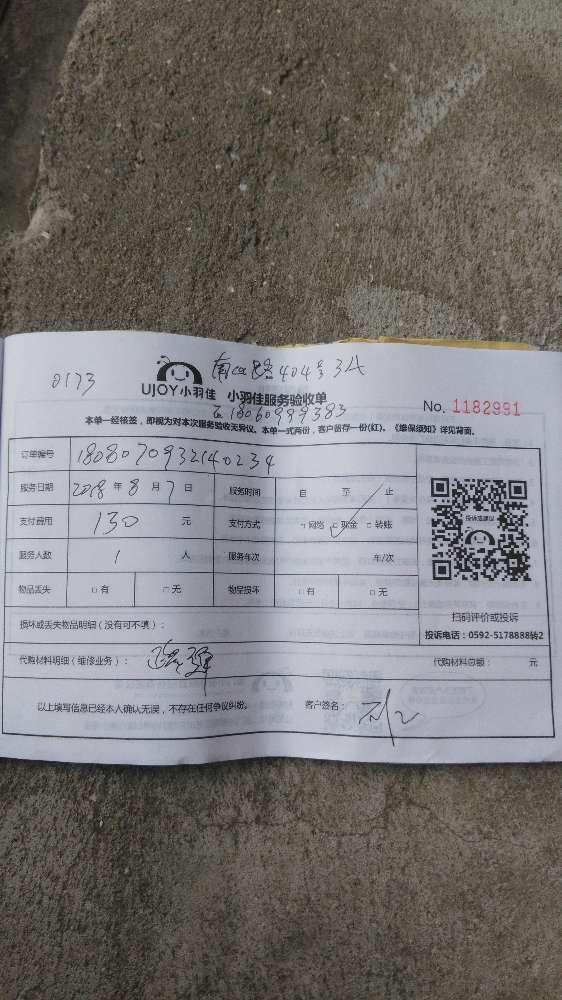 0173
南山路404号3A
UJOY小羽佳 小羽佳服务验收单
18060999383
No. 1182991
本单一经核签，即视为对本次服务验收无异议。本单一式两份，客户留存一份(红)。《维保须知》详见背面。
订单编号 1808070932140234
服务日期 2018年8月7日 服务时间 自 至 止
支付费用 130 元 支付方式 □网络 □现金 □转账
服务人数 1 人 服务车次 车/次
物品丢失 □有 □无 物品损坏 □有 □无
投诉或建议
扫码评价或投诉
投诉电话：0592-5178888转2
损坏或丢失物品明细（没有可不填）：
代购材料明细（维修业务）： 代购材料总额： 元
以上填写信息已经本人确认无误，不存在任何争议纠纷。 客户签名：